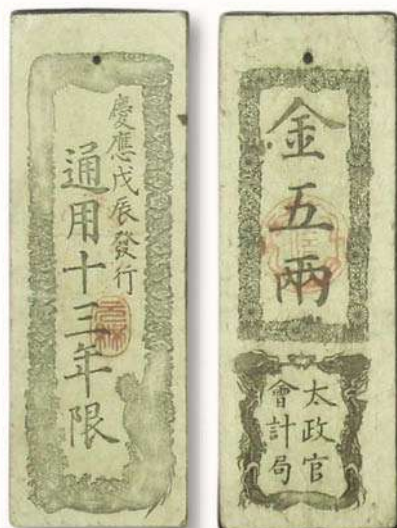 慶應戊辰發行
通用十三年限
金五兩
太政官
會計局